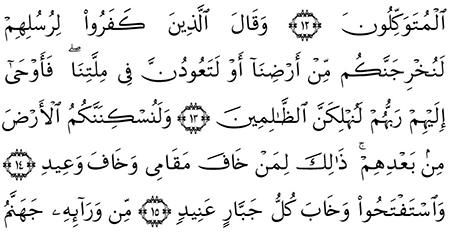 ٱلۡمُتَوَكِّلُونَ ١٢ وَقَالَ ٱلَّذِينَ كَفَرُواْ لِرُسُلِهِمۡ
لَنُخۡرِجَنَّكُم مِّنۡ أَرۡضِنَآ أَوۡ لَتَعُودُنَّ فِي مِلَّتِنَاۖ فَأَوۡحَىٰٓ
إِلَيۡهِمۡ رَبُّهُمۡ لَنُهۡلِكَنَّ ٱلظَّـٰلِمِينَ ١٣ وَلَنُسۡكِنَنَّكُمُ ٱلۡأَرۡضَ
مِنۢ بَعۡدِهِمۡۚ ذَٰلِكَ لِمَنۡ خَافَ مَقَامِي وَخَافَ وَعِيدِ ١٤
وَٱسۡتَفۡتَحُواْ وَخَابَ كُلُّ جَبَّارٍ عَنِيدٖ ١٥ مِّن وَرَآئِهِۦ جَهَنَّمُ